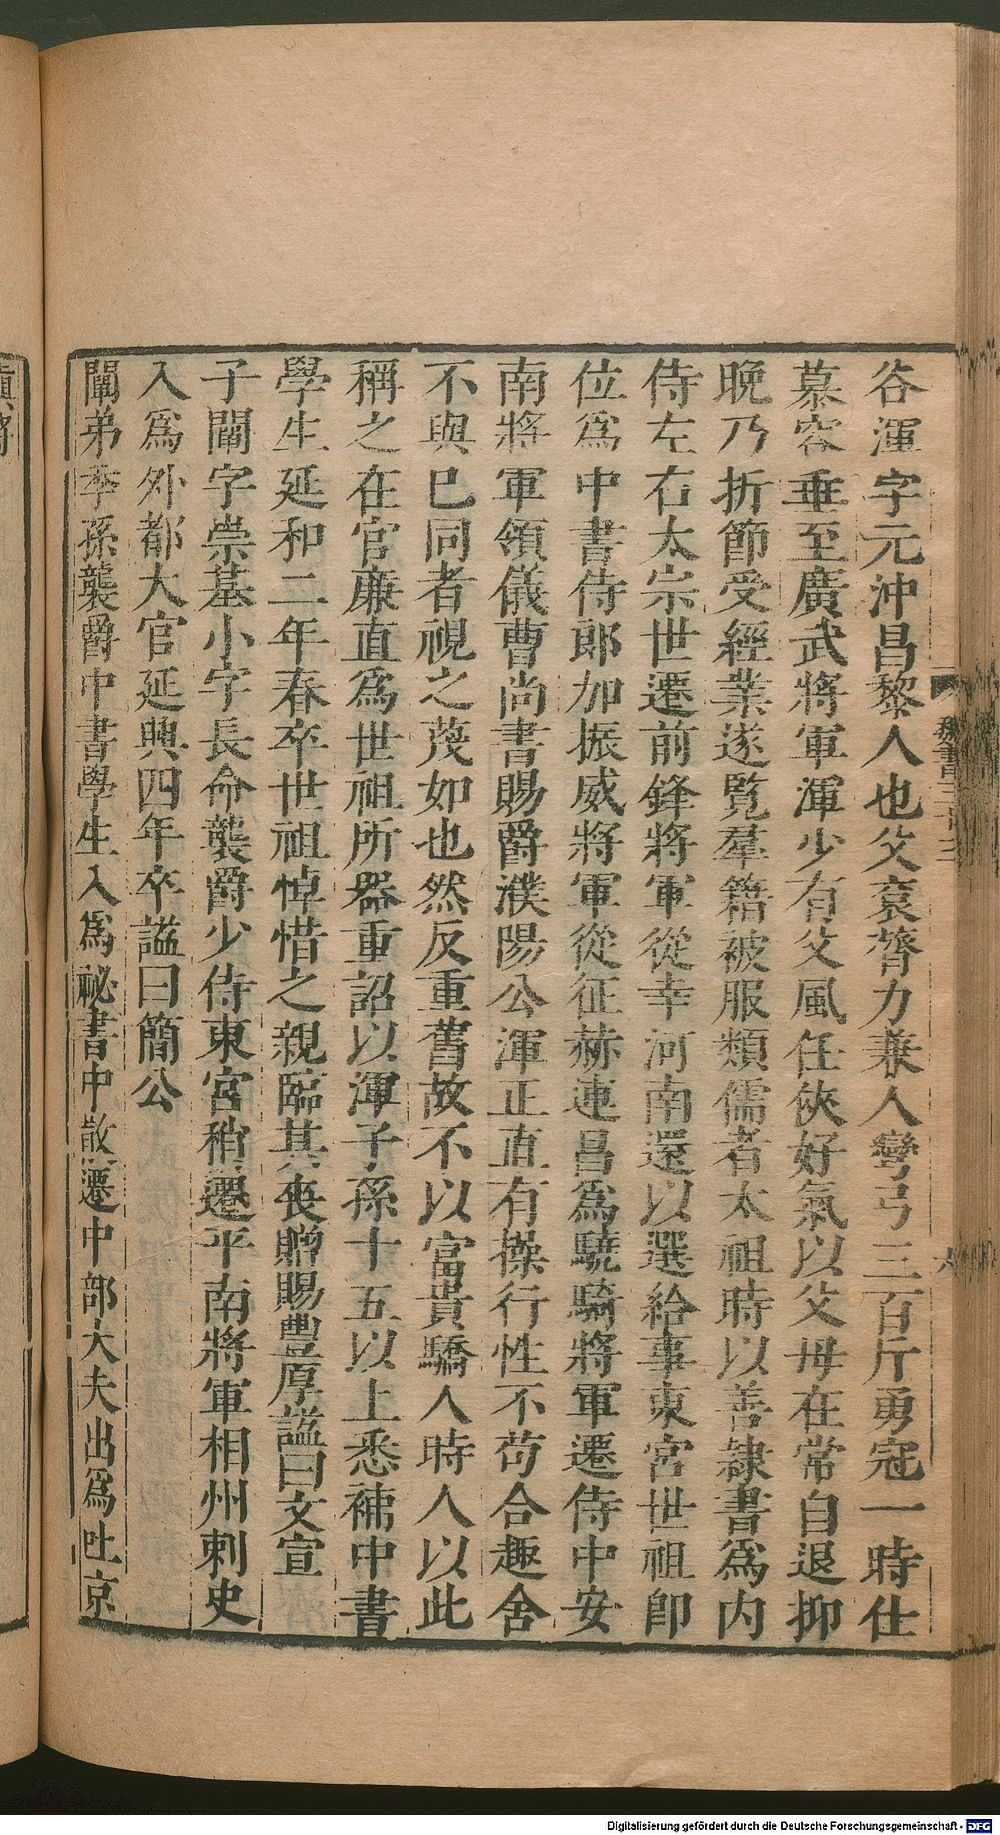 谷渾字元沖昌黎人也父袞膂力兼人彎弓三百斤勇冠一時仕
慕容垂至廣武將軍渾少有父風任俠好氣以父母在常自退抑
晚乃折節受經業遂覽羣籍被服類儒者太祖時以善隷書爲内
侍左右太宗世遷前鋒將軍從幸河南還以選給事東宮世祖卽
位爲中書侍郎加振威將軍從征赫連昌爲驍騎將軍遷侍中安
南將軍領儀曹尚書賜爵濮陽公渾正直有操行性不苟合趣舍
不與巳同者視之蔑如也然反重舊故不以富貴驕人時人以此
稱之在官廉直爲世祖所器重詔以渾子孫十五以上悉補中書
學生延和二年春卒世祖悼惜之親臨其喪贈賜豐厚謚曰文宣
子闡字崇基小字長命襲爵少侍東宮稍遷平南將軍相州刺史
入爲外都大官延興四年卒謚曰簡公
闡弟季孫襲爵中書學生入爲祕書中散遷中部大夫出爲吐京
鎭將
Digitalisierung gefördert durch die Deutsche Forschungsgemeinschaft - DFG